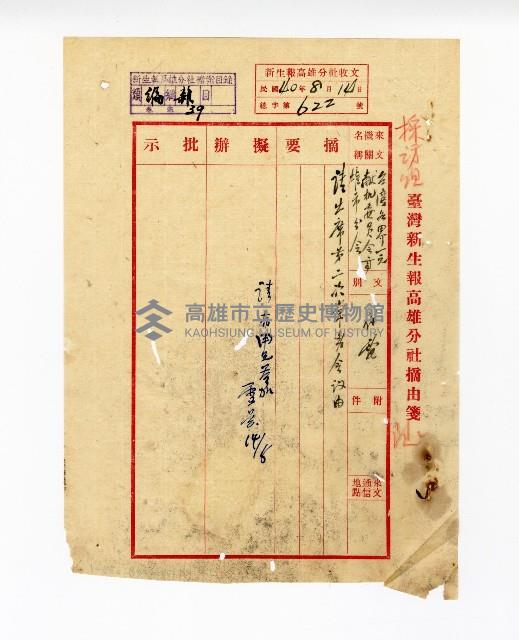 新生報高雄分社檔案目錄
類 編 輯 目
卷 39
新生報高雄分社收文
民國40年8月14日
總字第622號
採訪組
臺灣新生報高雄分社摘由箋
來文機關名稱
台灣各界一元獻機委員會高雄市分會
文別
代電
附件
來文通信地點
摘要
請出席第二次委員會議由
擬辦
批示
14/8
高雄市立歷史博物館
KAOHSIUNG MUSEUM OF HISTORY